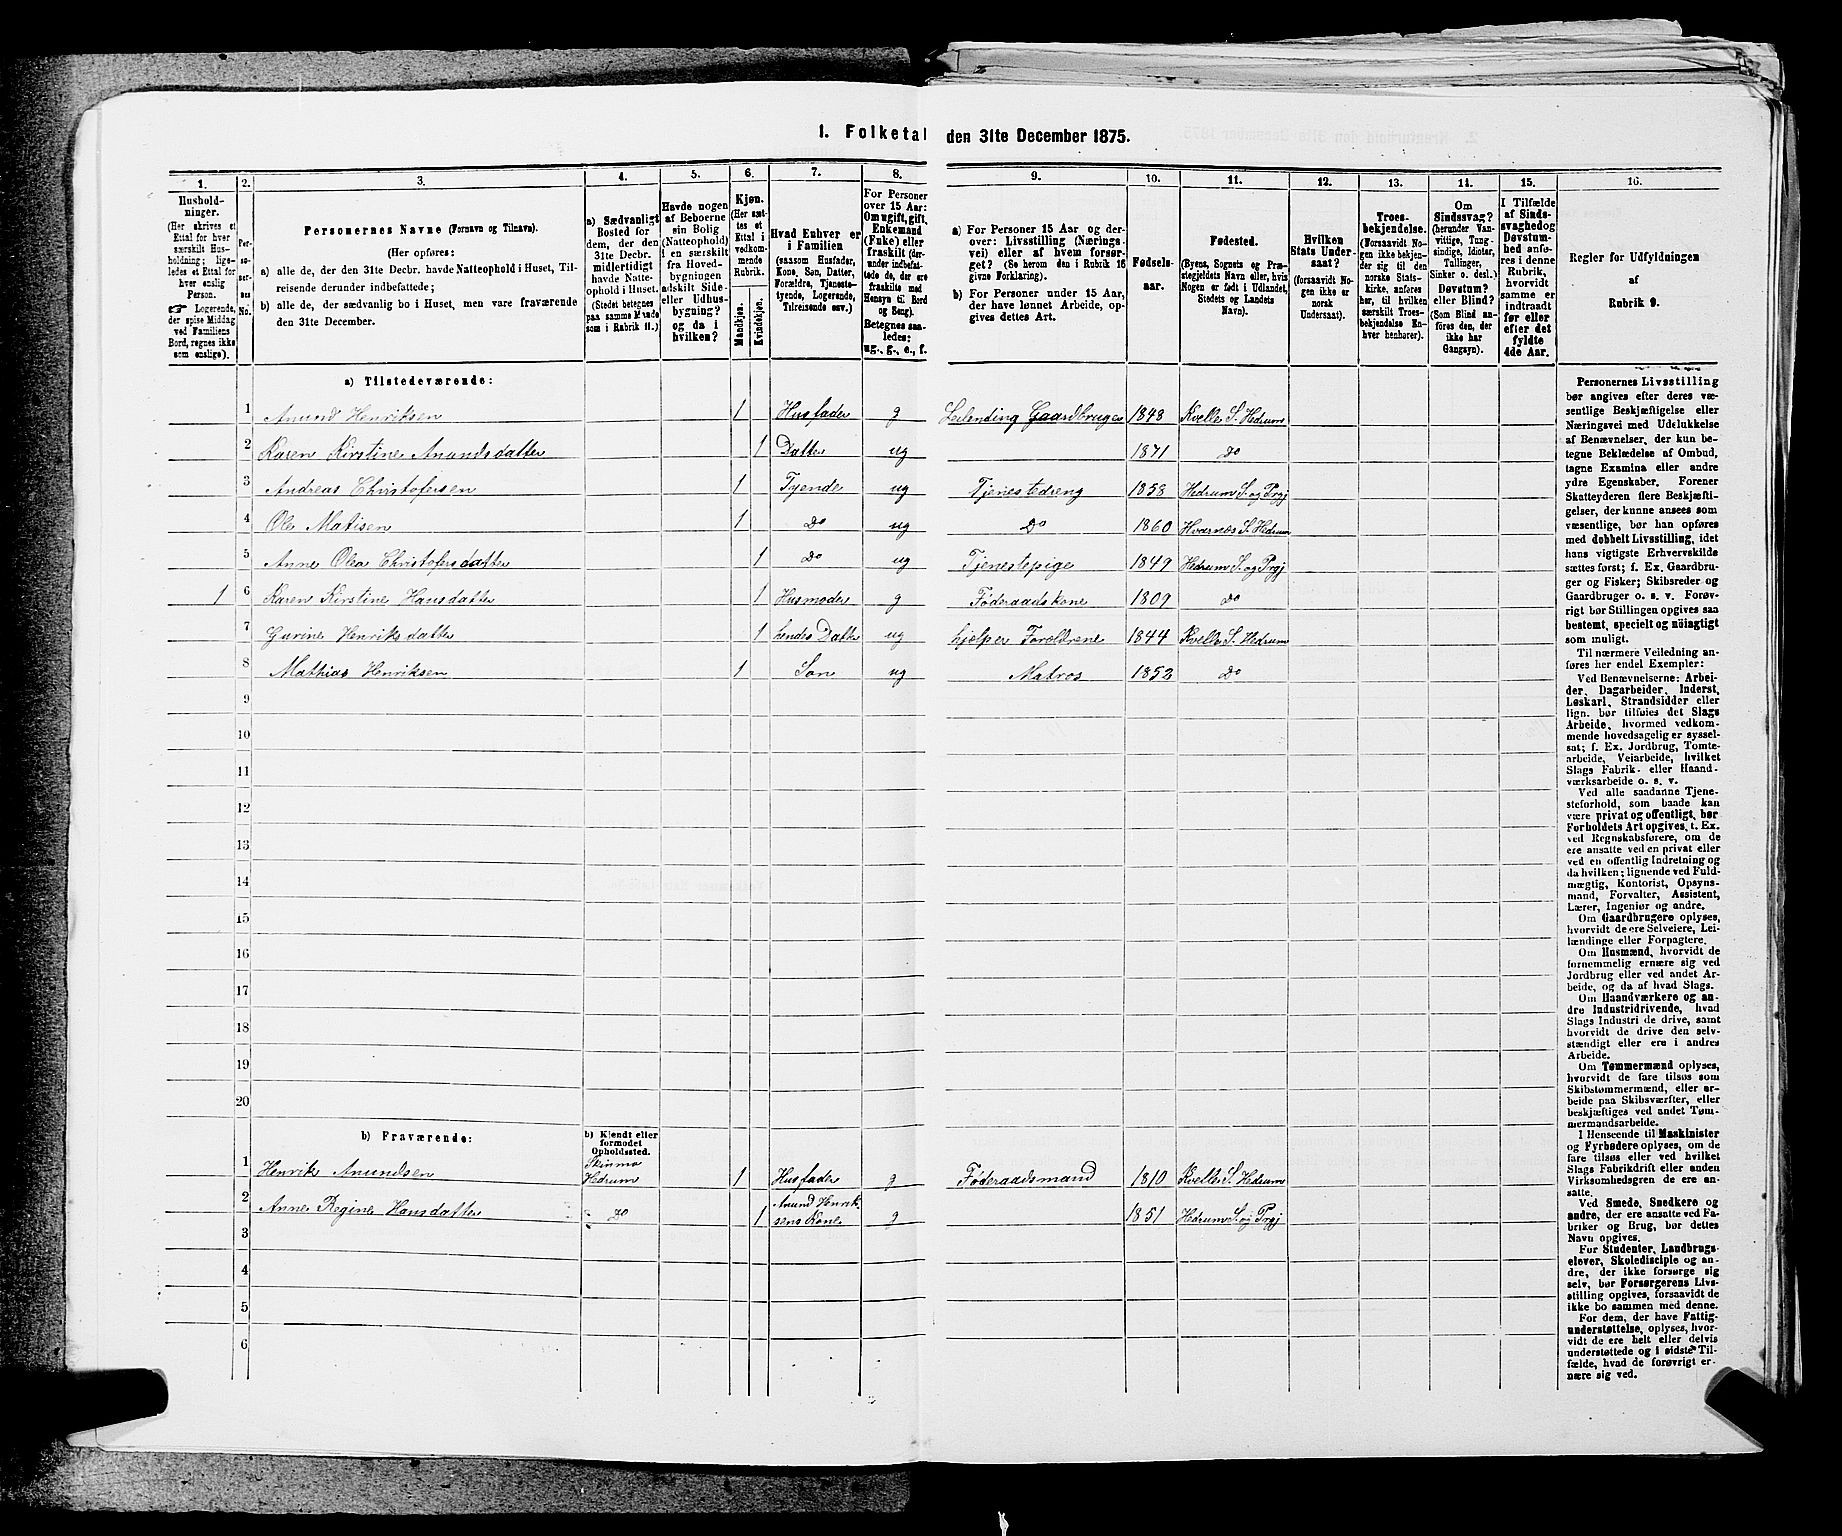 1. Folketal den 31te December 1875.
1. 2. 3. 4. 5. 6. 7. 8. 9. 10. 11. 12. 13. 14. 15. 16.
Hushold-
ninger.
(Her skrives et
Ettal for hver
særskilt Hus-
holdning; lige-
ledes et Ettal for
hver enslig
Person.
Logerende,
der spise Middag
ved Familiens
Bord, regnes ikke
som enslige).
Personernes Navne (Fornavn og Tilnavn).
(Her opføres:
a) alle de, der den 31te Decbr. havde Natteophold i Huset, Til-
reisende derunder indbefattede;
b) alle de, der sædvanlig bo i Huset, men vare fraværende
den 31te December.
a) Sædvanligt
Bosted for
dem, der den
31te Decbr.
midlertidigt
havde Natte-
ophold i Huset.
(Stedet betegnes
paa samme Maade
som i Rubrik 11.)
Havde nogen
af Beboerne
sin Bolig
(Natteophold)
i en særskilt
fra Hoved-
bygningen
adskilt Side-
eller Udhus-
bygning?
og da i
hvilken?
Kjøn.
(Her sæt-
tes et
Ettal i
vedkom-
mende
Rubrik.
Mandkjøn.
Kvindekjøn.
Hvad Enhver er
i Familien
(saasom Husfader,
Kone, Søn, Datter,
Forældre, Tjeneste-
tyende, Logerende,
Tilreisende osv.)
For Personer
over 15 Aar:
Om ugift, gift,
Enkemand
(Enke) eller
fraskilt (der-
under indbefat-
tede de, der ere
fraskilte med
Hensyn til Bord
og Seng).
Betegnes saa-
ledes:
ug., g., e., f.
a) For Personer 15 Aar og der-
over: Livsstilling (Nærings-
vei) eller af hvem forsør-
get? (Se herom den i Rubrik 16
givne Forklaring).
b) For Personer under 15 Aar,
der have lønnet Arbeide, op-
gives dettes Art.
Fødsels-
aar.
Fødested.
(Byens, Sognets og Præ-
stegjeldets Navn eller, hvis
Nogen er født i Udlandet,
Stedets og Landets
Navn).
Hvilken
Stats Under-
saat?
(forsaavidt No-
gen ikke er
norsk
Undersaat).
Troes-
bekjendelse.
(Forsaavidt No-
gen ikke bekjen-
der sig til den
norske Stats-
kirke, anføres
her, til hvilken
særskilt Troes-
bekjendelse En-
hver henhører).
Om
Sindssvag?
(herunder Van-
vittige, Tung-
sindige, Idioter,
Tullinger,
Sinker o. desl.)
Døvstum?
eller Blind?
(Som Blind an-
føres den, der
ikke har
Gangsyn).
I Tilfælde
af Sinds-
svaghed og
Døvstum-
hed anfø-
res i denne
Rubrik,
hvorvidt
samme er
indtraadt
før eller
efter det
fyldte
4de Aar.
Regler for Udfyldningen
af
Rubrik 9.
a) Tilstedeværende:
1 Anund Henriksen 1 Husfader g Leilending Gaardbruger 1848 Kvelle S. Hedrum
2 Karen Kirstine Anundsdatter 1 Datter ug 1871 Do
3 Andreas Christofersen 1 Tyende ug Tjenestedreng 1858 Hedrum S. og Prgj
4 Ole Matisen 1 Do ug Do 1860 Hvarnes S. Hedrum
5 Anne Olea Christofersdatter 1 Do ug Tjenestepige 1849 Hedrum S. og Prgj
1 6 Karen Kirstine Hansdatter 1 Husmoder g Føderaadskone 1809 Do
7 Gurine Henriksdatter 1 hendes Datter ug hjelper Foreldrene 1844 Kvelle S. Hedrum
8 Mathias Henriksen 1 Søn ug Matros 1852 Do
9
10
11
12
13
14
15
16
17
18
19
20
b) Fraværende:
b) Kjendt eller
formodet
Opholdssted.
1 Henrik Anundsen Hedrum 1 Husfader g Føderaadsmand 1810 Kvelle S. Hedrum
2 Anne Regine Hansdatter Do 1 Anund Henrik-
sens Kone g 1851 Hedrum S. og Prgj
3
4
5
6
Personernes Livsstilling
bør angives efter deres væ-
sentlige Beskjæftigelse eller
Næringsvei med Udelukkelse
af Benævnelser, der kun be-
tegne Beklædelse af Ombud,
tagne Examina eller andre
ydre Egenskaber. Forener
Skatteyderen flere Beskjæfti-
gelser, der kunne ansees som
væsentlige, bør han opføres
med dobbelt Livsstilling, idet
hans vigtigste Erhvervskilde
sættes først; f. Ex. Gaardbru-
ger og Fisker; Skibsreder og
Gaardbruger o. s. v. Forøv-
rigt bør Stillingen opgives saa
bestemt, specielt og nøiagtigt
som muligt.
Til nærmere Veiledning an-
føres her endel Exempler:
Ved Benævnelserne: Arbei-
der, Dagarbeider, Inderst,
Løskarl, Strandsidder eller
lign. bør tilføies det Slags
Arbeide, hvormed vedkom-
mende hovedsagelig er syssel-
sat; f. Ex. Jordbrug, Tomte-
arbeide, Veiarbeide, hvilket
Slags Fabrik- eller Haand-
værksarbeide o. s. v.
Ved alle saadanne Tjene-
steforhold, som baade kan
være privat og offentligt, bør
Forholdets Art opgives, t. Ex.
ved Regnskabsførere, om de
ere ansatte ved en privat eller
ved en offentlig Indretning og
da hvilken; lignende ved Fuld-
mægtig, Kontorist, Opsyns-
mand, Forvalter, Assistent,
Lærer, Ingeniør og andre.
Om Gaardbrugere oplyses,
hvorvidt de ere Selveiere, Lei-
lændinge eller Forpagtere.
Om Husmænd, hvorvidt de
fornemmelig ernære sig ved
Jordbrug eller ved andet Ar-
beide, og da af hvad Slags.
Om Haandværkere og an-
dre Industridrivende, hvad
Slags Industri de drive, samt
hvorvidt de drive den selv-
stændigt eller ere i andres
Arbeide.
Om Tømmermænd oplyses,
hvorvidt de fare tilsøs som
Skibstømmermænd, eller ar-
beide paa Skibsværfter, eller
beskjæftiges ved andet Tøm-
mermandsarbeide.
I Henseende til Maskinister
og Fyrbødere oplyses, om de
fare tilsøs eller ved hvilket
Slags Fabrikdrift eller anden
Virksomhedsgren de ere an-
satte.
Ved Smede, Snedkere og
andre, der ere ansatte ved Fa-
briker og Brug, bør dettes
Navn opgives.
For Studenter, Landbrugs-
elever, Skoledisciple og an-
dre, der ikke forsørge sig
selv, bør Forsørgerens Livs-
stilling opgives, forsaavidt de
ikke bo sammen med denne.
For dem, der have Fattig-
understøttelse, oplyses, hvor-
vidt de ere helt eller delvis
understøttede og i sidste Til-
fælde, hvad de forøvrigt er-
nære sig ved.